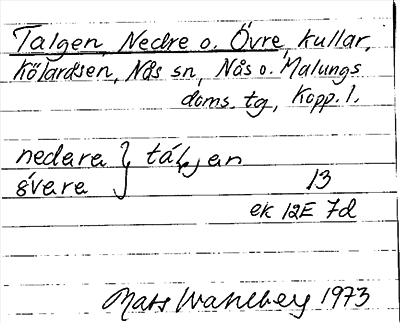 Talgen, Nedre o. Övre, kullar,
Kölaråsen, Nås sn, Nås o. Malungs
doms. tg, Kopp. l.
nedara } tál̥jan
övara 13
ek 12E 7d
Mats Wahlberg 1973